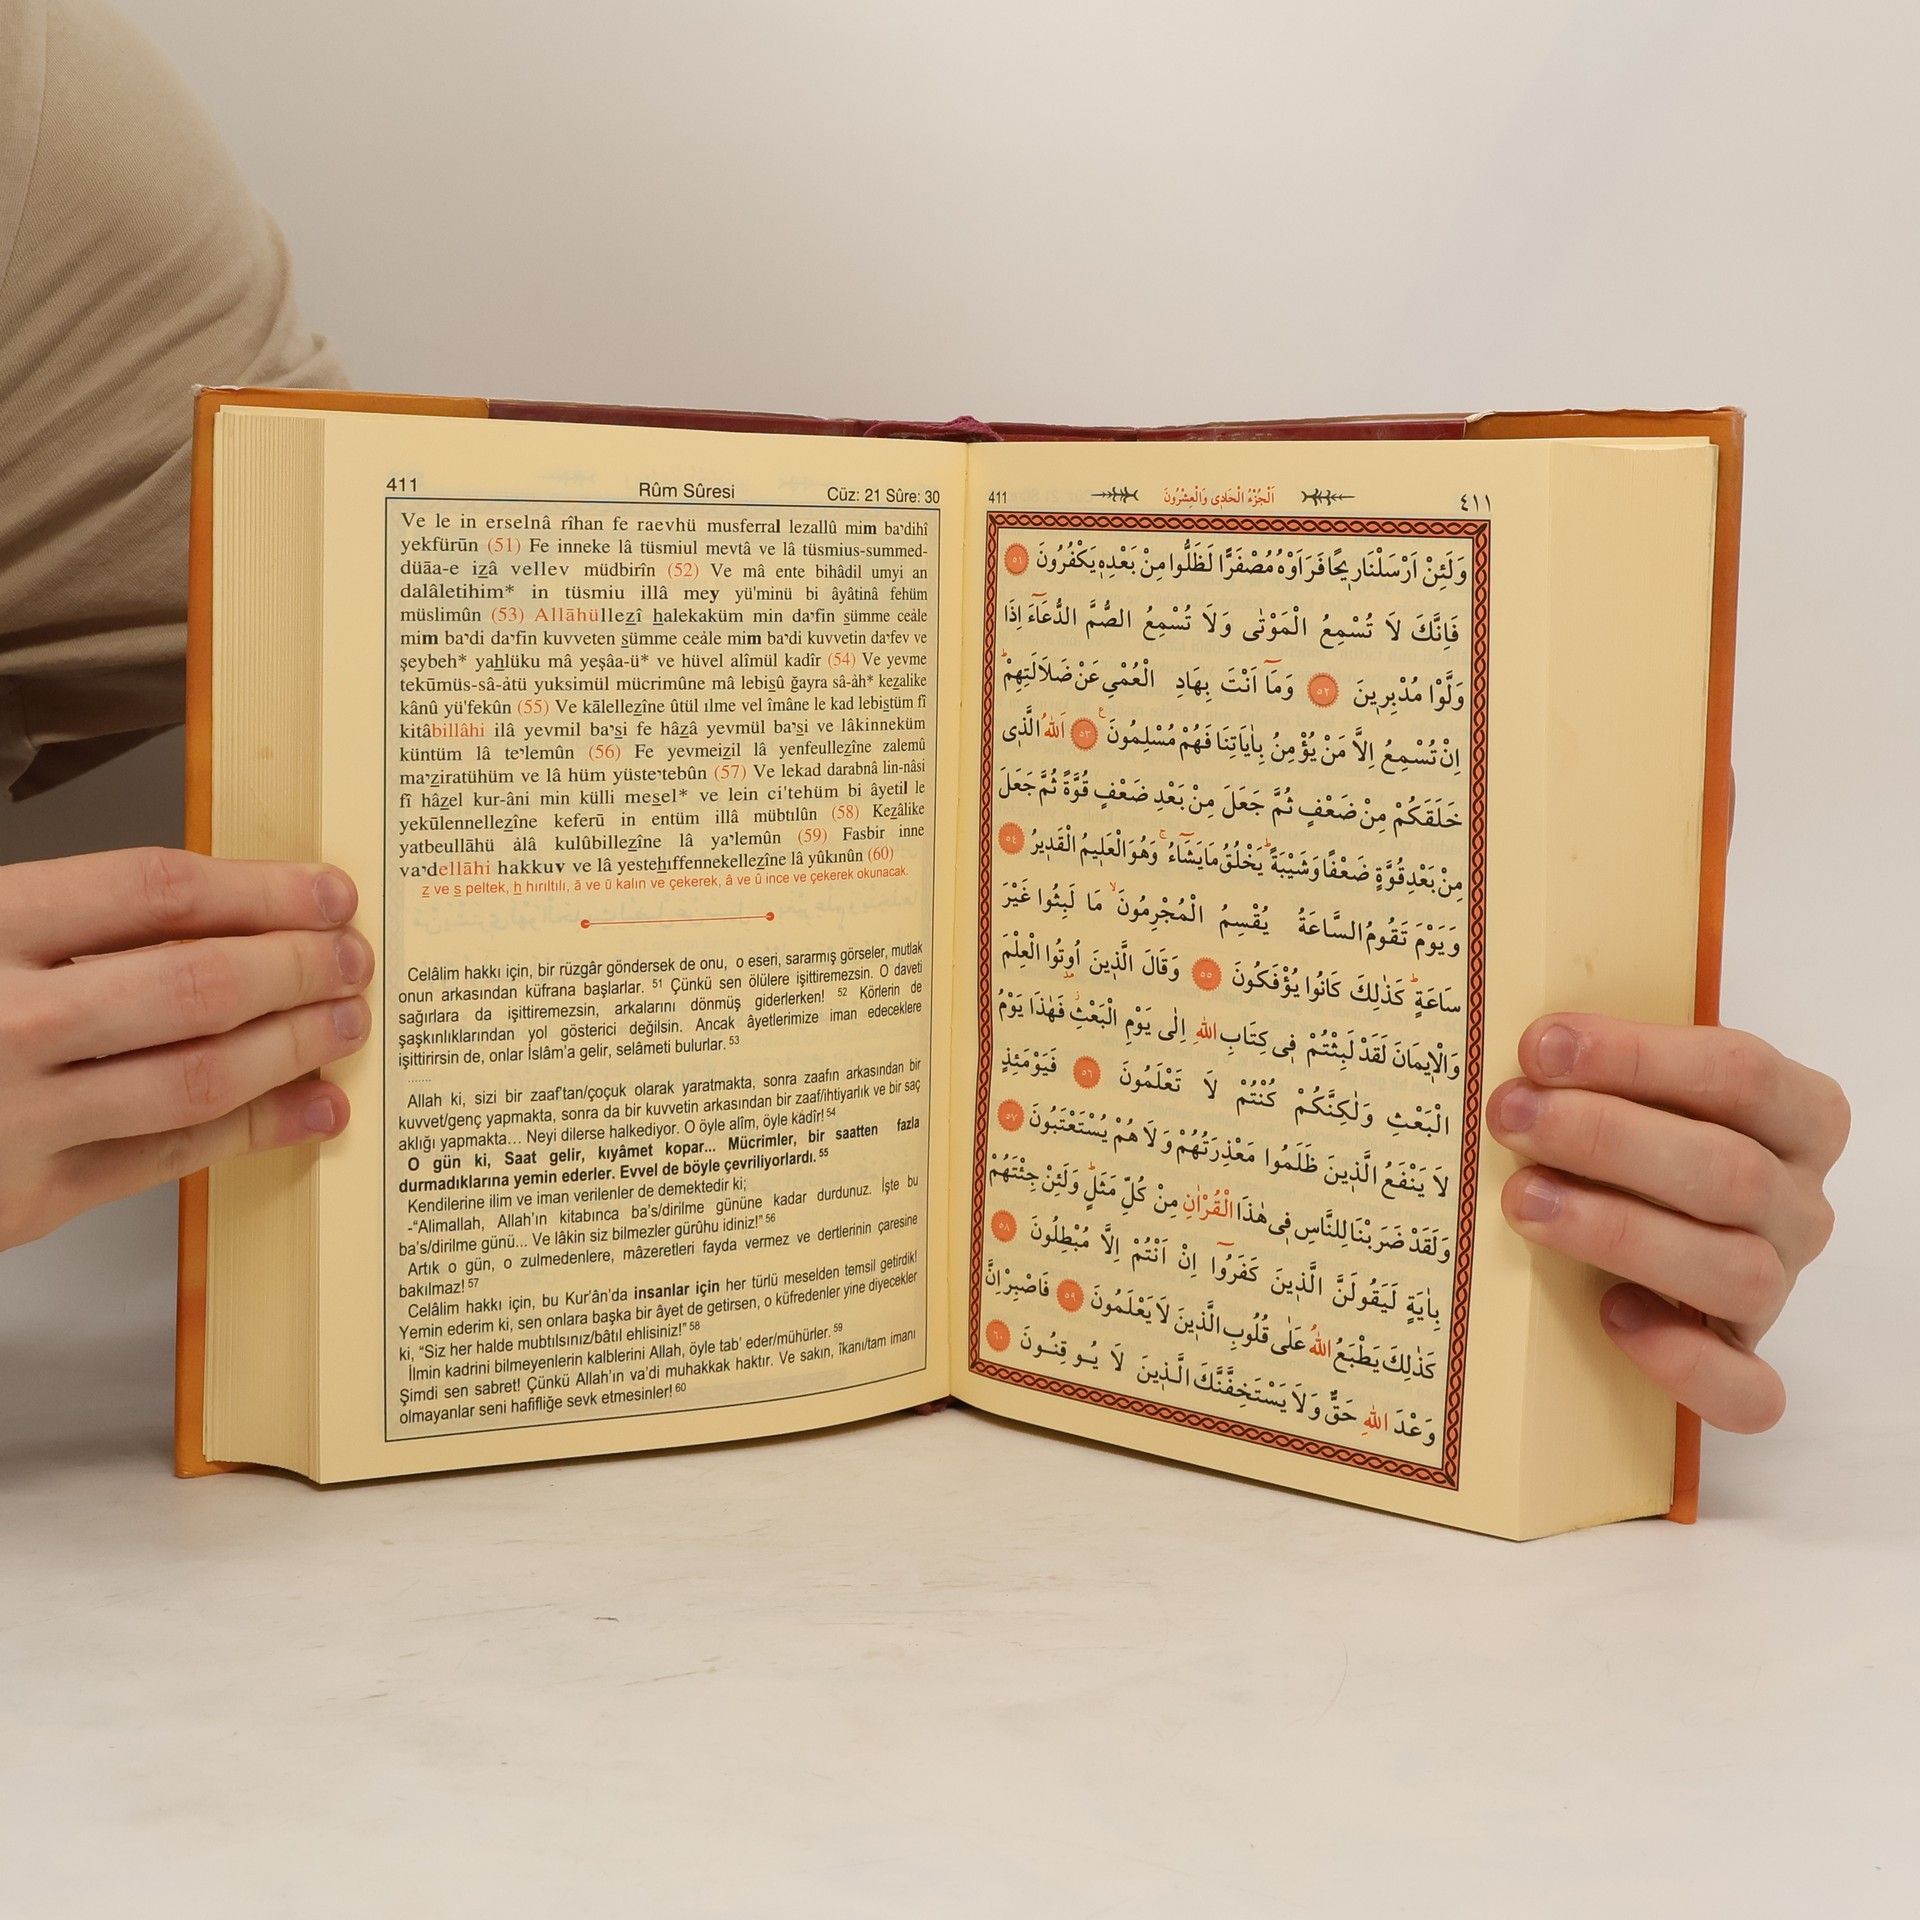 411 Rûm Sûresi Cüz: 21 Sûre: 30
Ve le in erselnâ rîhan fe raevhü musferral lezallû mim ba'dihî
yekfürūn (51) Fe inneke lâ tüsmiul mevtâ ve lâ tüsmius-summed-
düāa-e izâ vellev müdbirîn (52) Ve mâ ente bihâdil umyi an
dalâletihim* in tüsmiu illâ mey yü'minü bi âyâtinâ fehüm
müslimûn (53) Allāhüllezî halekaküm min da'fin sümme ceâle
mim ba'di da'fin kuvveten sümme ceâle mim ba'di kuvvetin da'fev ve
şeybeh* yahlüku mâ yeşâa-ü* ve hüvel alîmül kadîr (54) Ve yevme
tekūmüs-sâ-àtü yuksimül mücrimûne mâ lebisû ğayra sâ-àh* kezalike
kânû yü'fekûn (55) Ve kālellezîne ûtül ılme vel îmâne le kad lebistüm fî
kitâbillâhi ilâ yevmil ba'si fe hâzâ yevmül ba'si ve lâkinneküm
küntüm lâ te'lemûn (56) Fe yevmeizil lâ yenfeullezîne zalemû
ma'ziratühüm ve lâ hüm yüste'tebûn (57) Ve lekad darabnâ lin-nâsi
fî hâzel kur-âni min külli mesel* ve lein ci'tehüm bi âyetil le
yekūlennellezîne keferū in entüm illâ mübtılûn (58) Kezâlike
yatbeullāhü àlâ kulûbillezîne lâ ya'lemûn (59) Fasbir inne
va'dellāhi hakkuv ve lâ yestehıffennekellezîne lâ yûkınûn (60)
z ve s peltek, h hırıltılı, ā ve ū kalın ve çekerek, â ve û ince ve çekerek okunacak.
Celâlim hakkı için, bir rüzgâr göndersek de onu, o eseri, sararmış görseler, mutlak
onun arkasından küfrana başlarlar. 51 Çünkü sen ölülere işittiremezsin. O daveti
sağırlara da işittiremezsin, arkalarını dönmüş giderlerken! 52 Körlerin de
şaşkınlıklarından yol gösterici değilsin. Ancak âyetlerimize iman edeceklere
işittirirsin de, onlar İslâm'a gelir, selâmeti bulurlar. 53
.......
Allah ki, sizi bir zaaf'tan/çoçuk olarak yaratmakta, sonra zaafın arkasından bir
kuvvet/genç yapmakta, sonra da bir kuvvetin arkasından bir zaaf/ihtiyarlık ve bir saç
aklığı yapmakta... Neyi dilerse halkediyor. O öyle alîm, öyle kádîr! 54
O gün ki, Saat gelir, kıyâmet kopar... Mücrimler, bir saatten fazla
durmadıklarına yemin ederler. Evvel de böyle çevriliyorlardı. 55
Kendilerine ilim ve iman verilenler de demektedir ki;
-"Alimallah, Allah'ın kitabınca ba's/dirilme gününe kadar durdunuz. İşte bu
ba's/dirilme günü... Ve lâkin siz bilmezler gürûhu idiniz!" 56
Artık o gün, o zulmedenlere, mâzeretleri fayda vermez ve dertlerinin çaresine
bakılmaz! 57
Celâlim hakkı için, bu Kur'ân'da insanlar için her türlü meselden temsil getirdik!
Yemin ederim ki, sen onlara başka bir âyet de getirsen, o küfredenler yine diyecekler
ki, "Siz her halde mubtılsınız/bâtıl ehlisiniz!" 58
İlmin kadrini bilmeyenlerin kalblerini Allah, öyle tab' eder/mühürler. 59
Şimdi sen sabret! Çünkü Allah'ın va'di muhakkak haktır. Ve sakın, îkanı/tam imanı
olmayanlar seni hafifliğe sevk etmesinler! 60
411 اَلْجُزْءُ الْحَادِى وَالْعِشْرُونَ ٤١١
وَلَئِنْ اَرْسَلْنَا رِيحًا فَرَاَوْهُ مُصْفَرًّا لَظَلُّوا مِنْ بَعْدِهٖ يَكْفُرُونَ ٥١
فَاِنَّكَ لَا تُسْمِعُ الْمَوْتٰى وَلَا تُسْمِعُ الصُّمَّ الدُّعَٓاءَ اِذَا
وَلَّوْا مُدْبِرٖينَ ٥٢ وَمَٓا اَنْتَ بِهَادِ الْعُمْيِ عَنْ ضَلَالَتِهِمْۜ
اِنْ تُسْمِعُ اِلَّا مَنْ يُؤْمِنُ بِاٰيَاتِنَا فَهُمْ مُسْلِمُونَ ٥٣ اَللّٰهُ الَّذٖى
خَلَقَكُمْ مِنْ ضَعْفٍ ثُمَّ جَعَلَ مِنْ بَعْدِ ضَعْفٍ قُوَّةً ثُمَّ جَعَلَ
مِنْ بَعْدِ قُوَّةٍ ضَعْفًا وَشَيْبَةًۜ يَخْلُقُ مَا يَشَٓاءُۚ وَهُوَ الْعَلٖيمُ الْقَدٖيرُ ٥٤
وَيَوْمَ تَقُومُ السَّاعَةُ يُقْسِمُ الْمُجْرِمُونَۙ مَا لَبِثُوا غَيْرَ
سَاعَةٍۜ كَذٰلِكَ كَانُوا يُؤْفَكُونَ ٥٥ وَقَالَ الَّذٖينَ اُوتُوا الْعِلْمَ
وَالْاٖيمَانَ لَقَدْ لَبِثْتُمْ فٖى كِتَابِ اللّٰهِ اِلٰى يَوْمِ الْبَعْثِۘ فَهٰذَا يَوْمُ
الْبَعْثِ وَلٰكِنَّكُمْ كُنْتُمْ لَا تَعْلَمُونَ ٥٦ فَيَوْمَئِذٍ
لَا يَنْفَعُ الَّذٖينَ ظَلَمُوا مَعْذِرَتُهُمْ وَلَا هُمْ يُسْتَعْتَبُونَ ٥٧
وَلَقَدْ ضَرَبْنَا لِلنَّاسِ فٖى هٰذَا الْقُرْاٰنِ مِنْ كُلِّ مَثَلٍۜ وَلَئِنْ جِئْتَهُمْ
بِاٰيَةٍ لَيَقُولَنَّ الَّذٖينَ كَفَرُٓوا اِنْ اَنْتُمْ اِلَّا مُبْطِلُونَ ٥٨
كَذٰلِكَ يَطْبَعُ اللّٰهُ عَلٰى قُلُوبِ الَّذٖينَ لَا يَعْلَمُونَ ٥٩ فَاصْبِرْ اِنَّ
وَعْدَ اللّٰهِ حَقٌّ وَلَا يَسْتَخِفَّنَّكَ الَّذٖينَ لَا يُوقِنُونَ ٦٠